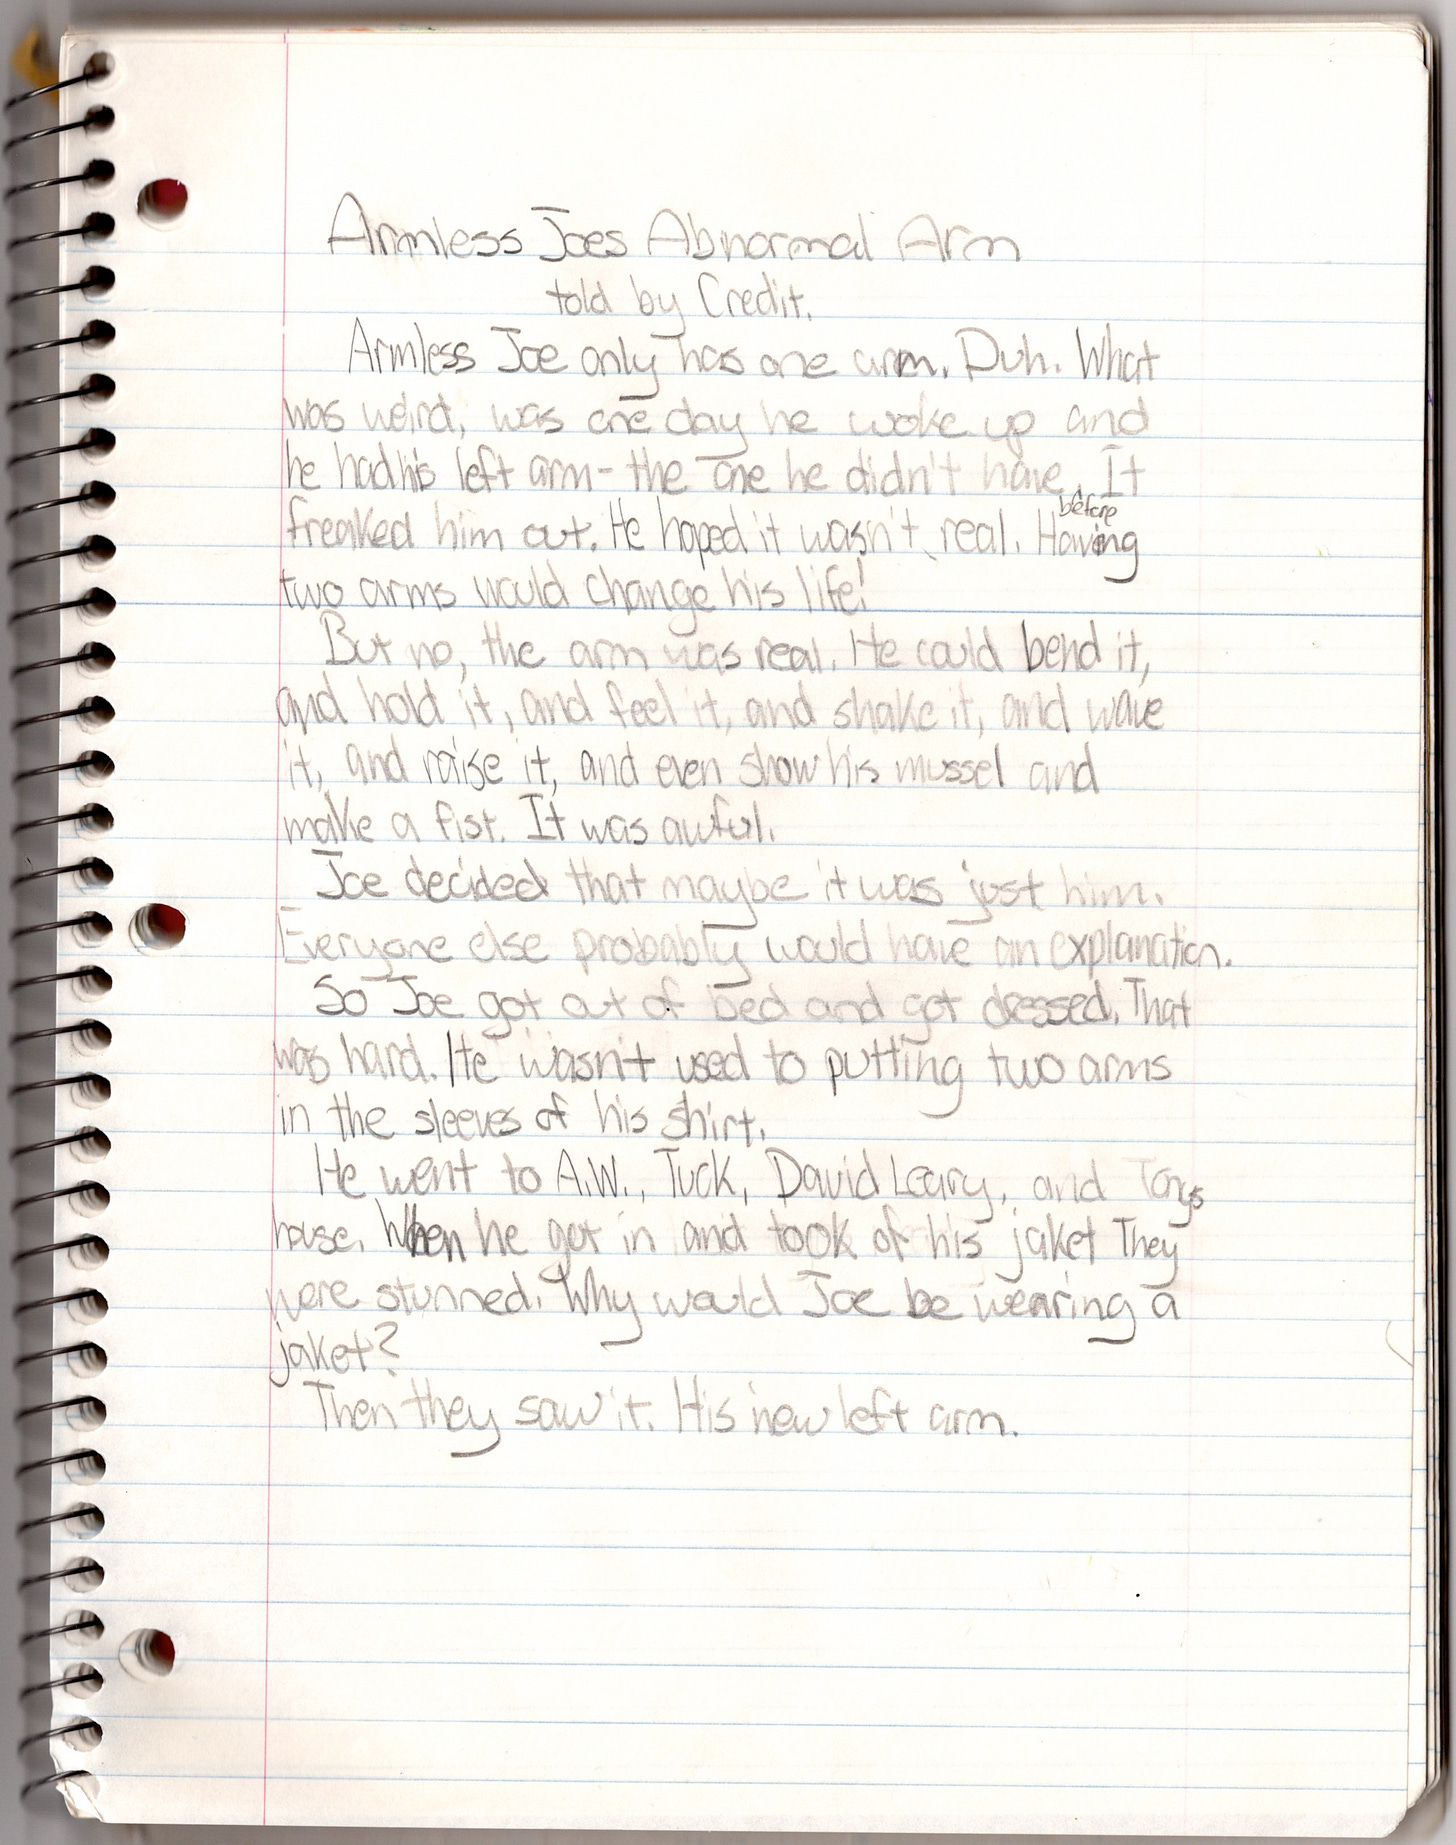 Armless Joes Abnormal Arm
told by Credit.
Armless Joe only has one arm. Duh. What
was weird, was one day he woke up and
he had his left arm - the one he didn't have before. It
freaked him out. He hoped it wasn't real. Having
two arms would change his life!
But no, the arm was real. He could bend it,
and hold it, and feel it, and shake it, and wave
it, and raise it, and even show his mussel and
make a fist. It was awful.
Joe decided that maybe it was just him.
Everyone else probably would have an explanation.
So Joe got out of bed and got dressed. That
was hard. He wasn't used to putting two arms
in the sleeves of his shirt.
He went to A.W., Tuck, David Leary, and Tonys
house. When he got in and took of his jaket They
were stunned. Why would Joe be wearing a
jaket?
Then they saw it. His new left arm.